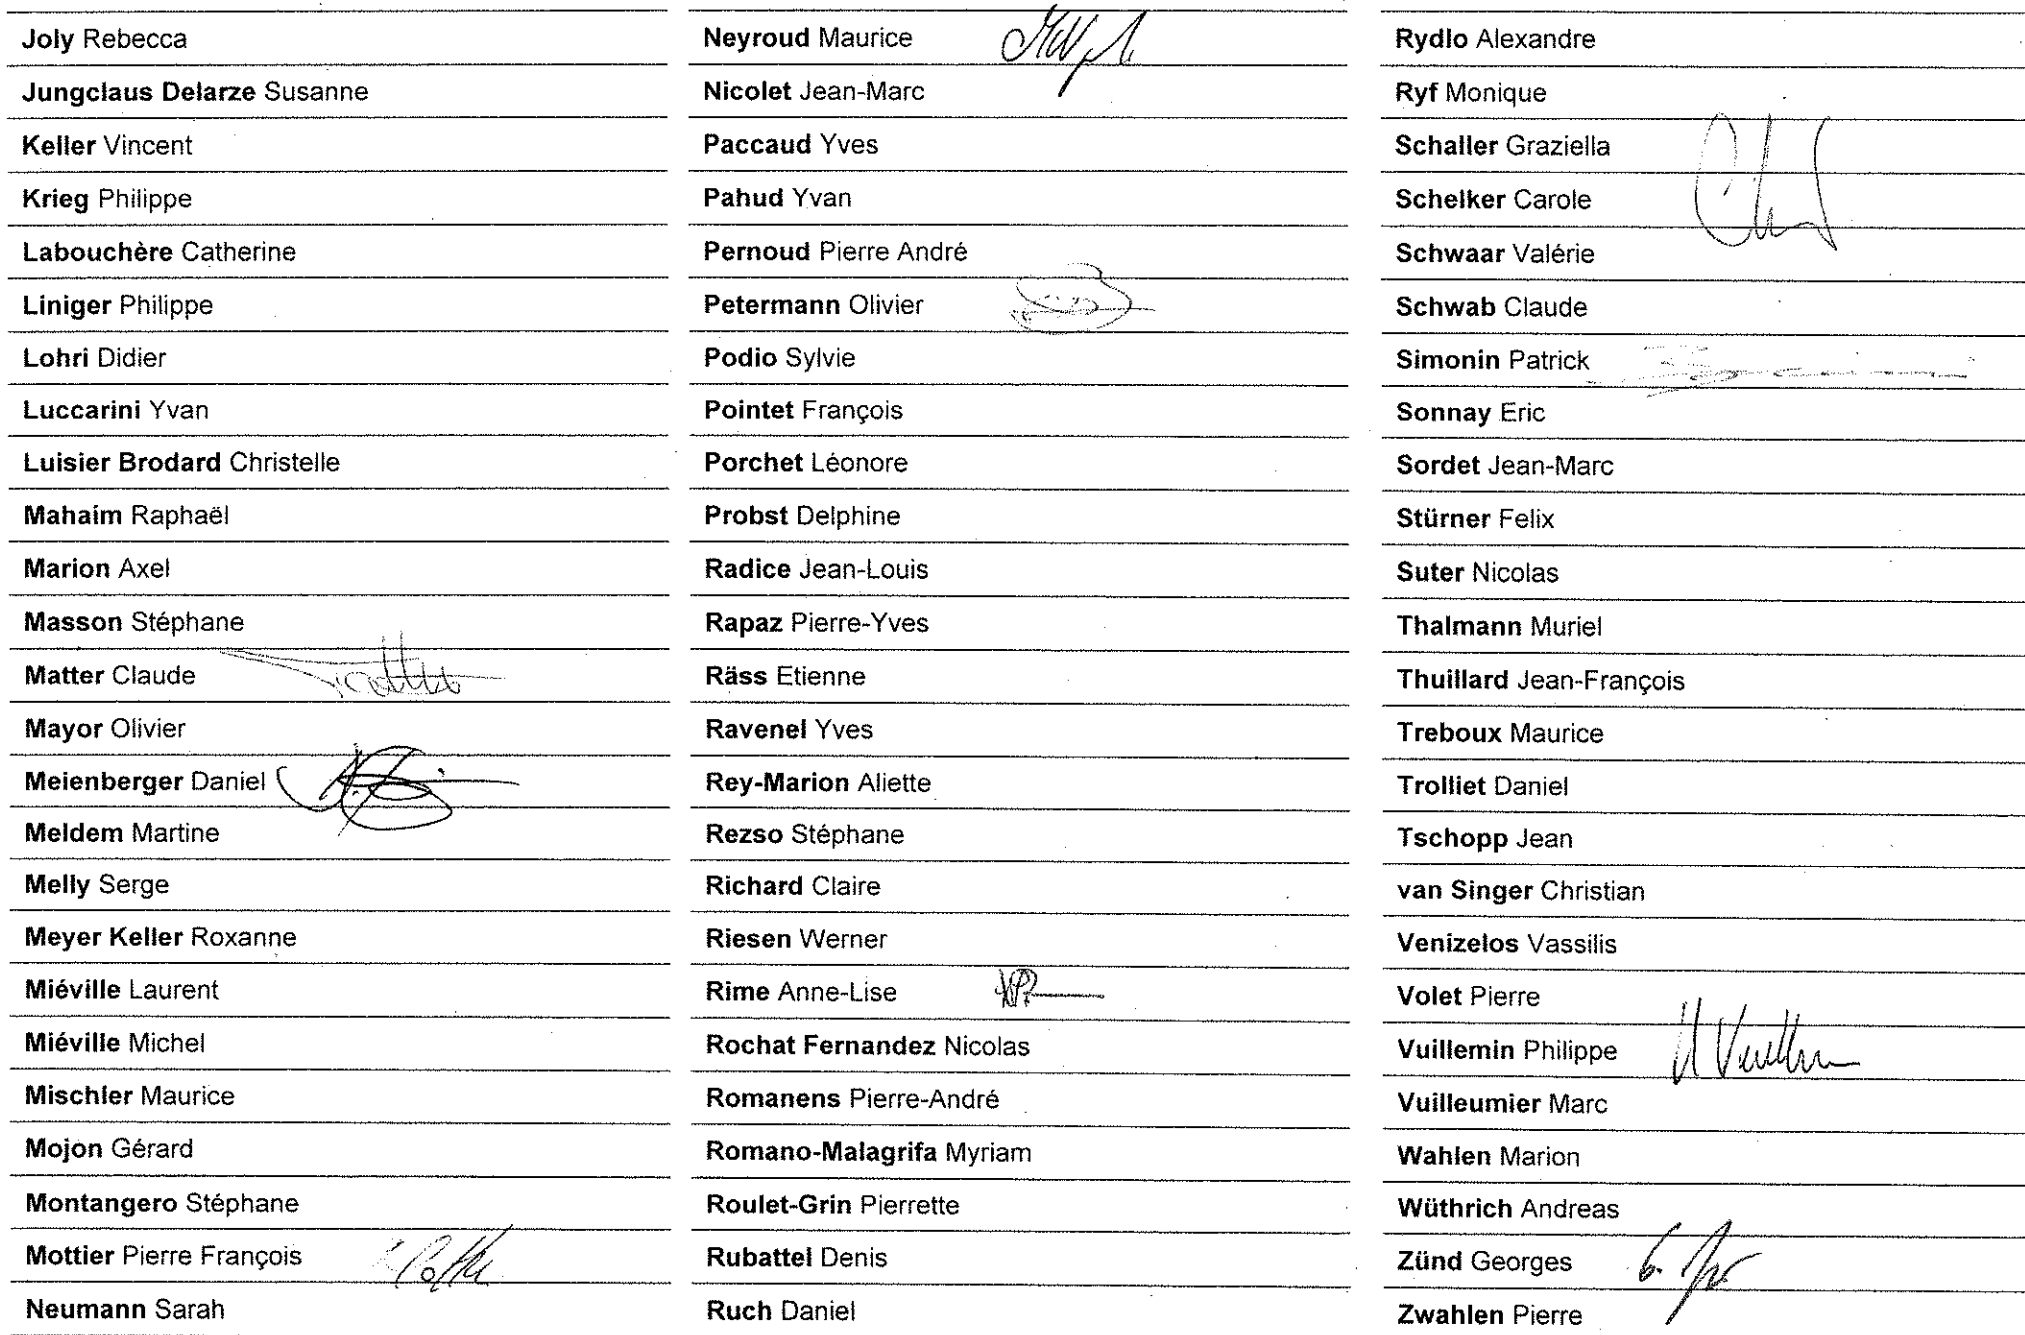 Joly Rebecca
Jungclaus Delarze Susanne
Keller Vincent
Krieg Philippe
Labouchère Catherine
Liniger Philippe
Lohri Didier
Luccarini Yvan
Luisier Brodard Christelle
Mahaim Raphaël
Marion Axel
Masson Stéphane
Matter Claude
Mayor Olivier
Meienberger Daniel
Meldem Martine
Melly Serge
Meyer Keller Roxanne
Miéville Laurent
Miéville Michel
Mischler Maurice
Mojon Gérard
Montangero Stéphane
Mottier Pierre François
Neumann Sarah
Neyroud Maurice
Nicolet Jean-Marc
Paccaud Yves
Pahud Yvan
Pernoud Pierre André
Petermann Olivier
Podio Sylvie
Pointet François
Porchet Léonore
Probst Delphine
Radice Jean-Louis
Rapaz Pierre-Yves
Räss Etienne
Ravenel Yves
Rey-Marion Aliette
Rezso Stéphane
Richard Claire
Riesen Werner
Rime Anne-Lise
Rochat Fernandez Nicolas
Romanens Pierre-André
Romano-Malagrifa Myriam
Roulet-Grin Pierrette
Rubattel Denis
Ruch Daniel
Rydlo Alexandre
Ryf Monique
Schaller Graziella
Schelker Carole
Schwaar Valérie
Schwab Claude
Simonin Patrick
Sonnay Eric
Sordet Jean-Marc
Stürner Felix
Suter Nicolas
Thalmann Muriel
Thuillard Jean-François
Treboux Maurice
Trolliet Daniel
Tschopp Jean
van Singer Christian
Venizelos Vassilis
Volet Pierre
Vuillemin Philippe
Vuilleumier Marc
Wahlen Marion
Wüthrich Andreas
Zünd Georges
Zwahlen Pierre